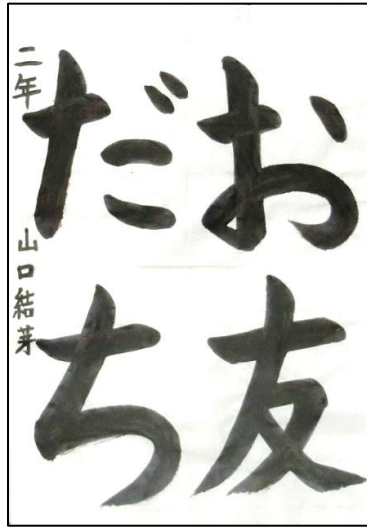 お友
だち
二年 山口結芽